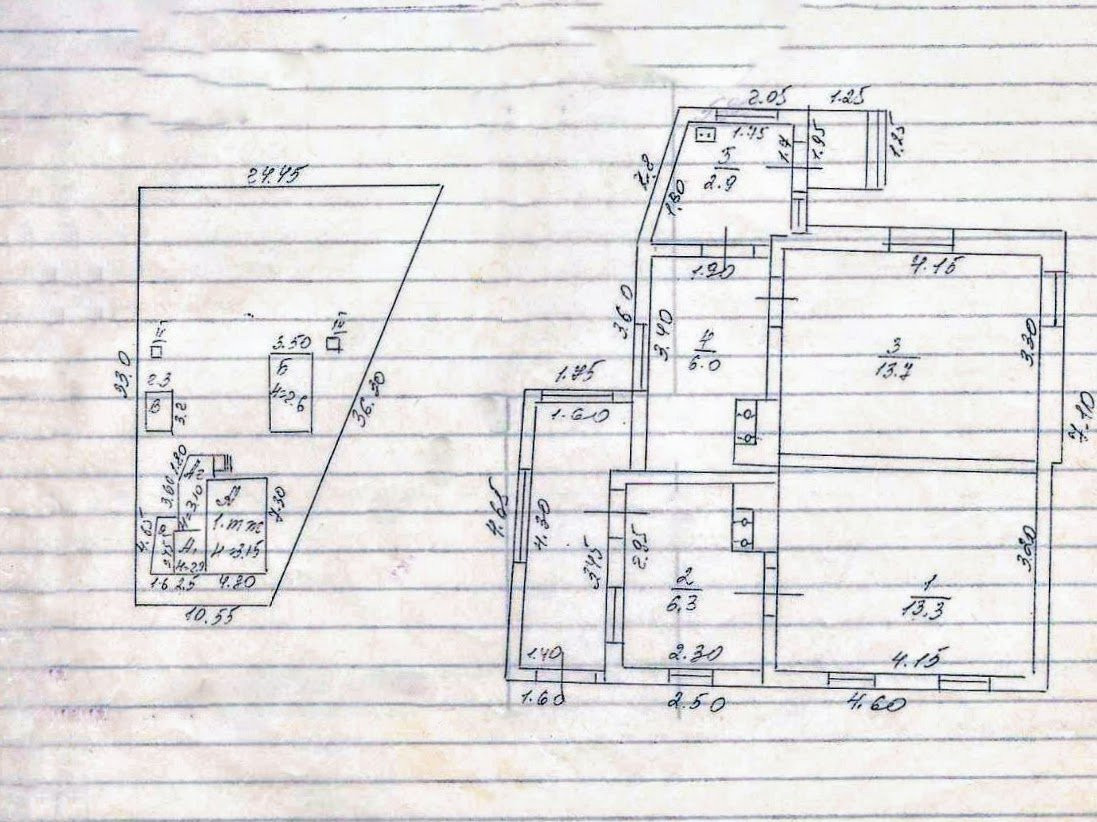 24.45
33.0
36.30
10.55
2.3
В
3.2
3.50
Б
H=2.6
1.80
3.60
H=3.10
4.65
1.6
2.5
4.20
4.30
H=3.15
2.05
1.25
1.75
1.7
1.95
1.25
5
2.9
2.8
1.80
1.20
3.60
3.40
4
6.0
4.15
3
13.7
3.30
7.10
1.75
1.60
4.65
4.30
3.45
2.95
2
6.3
3.20
1
13.3
1.40
2.30
4.15
1.60
2.50
4.60